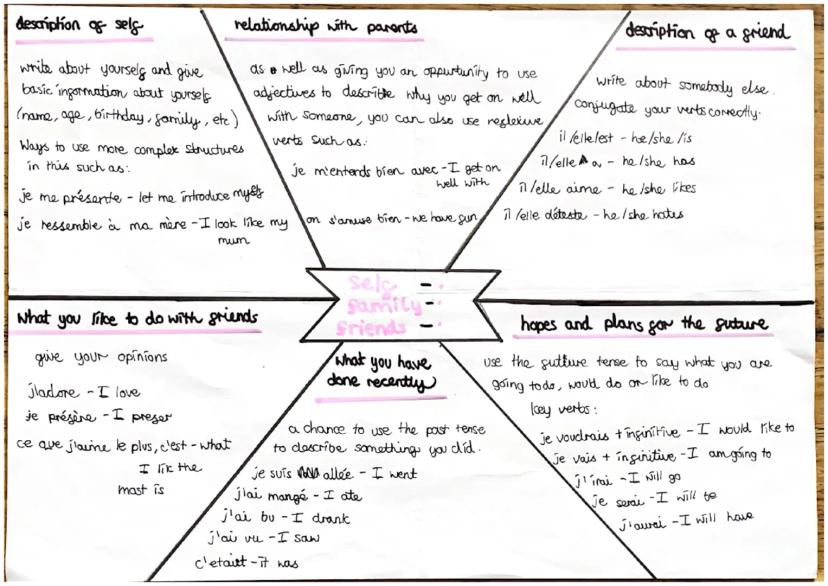 description of self
write about yourself and give
basic information about yourself
(name, age, birthday, family, etc)
Ways to use more complex structures
in this such as:
je me présente - let me introduce myself
je ressemble à ma mère - I look like my
mum
relationship with parents
as well as giving you an oppurtunity to use
adjectives to describe why you get on well
with someone, you can also use reflexive
verbs such as:
je m'entends bien avec - I get on
well with
on s'amuse bien - we have fun
description of a friend
write about somebody else.
conjugate your verbs correctly.
il/elle/est - he/she/is
il/elle a - he/she has
il/elle aime - he/she likes
il/elle déteste - he/she hates
self -
family -
friends -
what you like to do with friends
give your opinions
j'adore - I love
je préfère - I prefer
ce que j'aime le plus, c'est - what
I lik the
most is
what you have
done recently
a chance to use the past tense
to describe something you did.
je suis allée - I went
j'ai mangé - I ate
j'ai bu - I drank
j'ai vu - I saw
c'etait - it was
hopes and plans for the future
use the future tense to say what you are
going to do, would do or like to do
key verbs:
je voudrais + infinitive - I would like to
je vais + infinitive - I am going to
j'irai - I will go
je serai - I will be
j'aurai - I will have